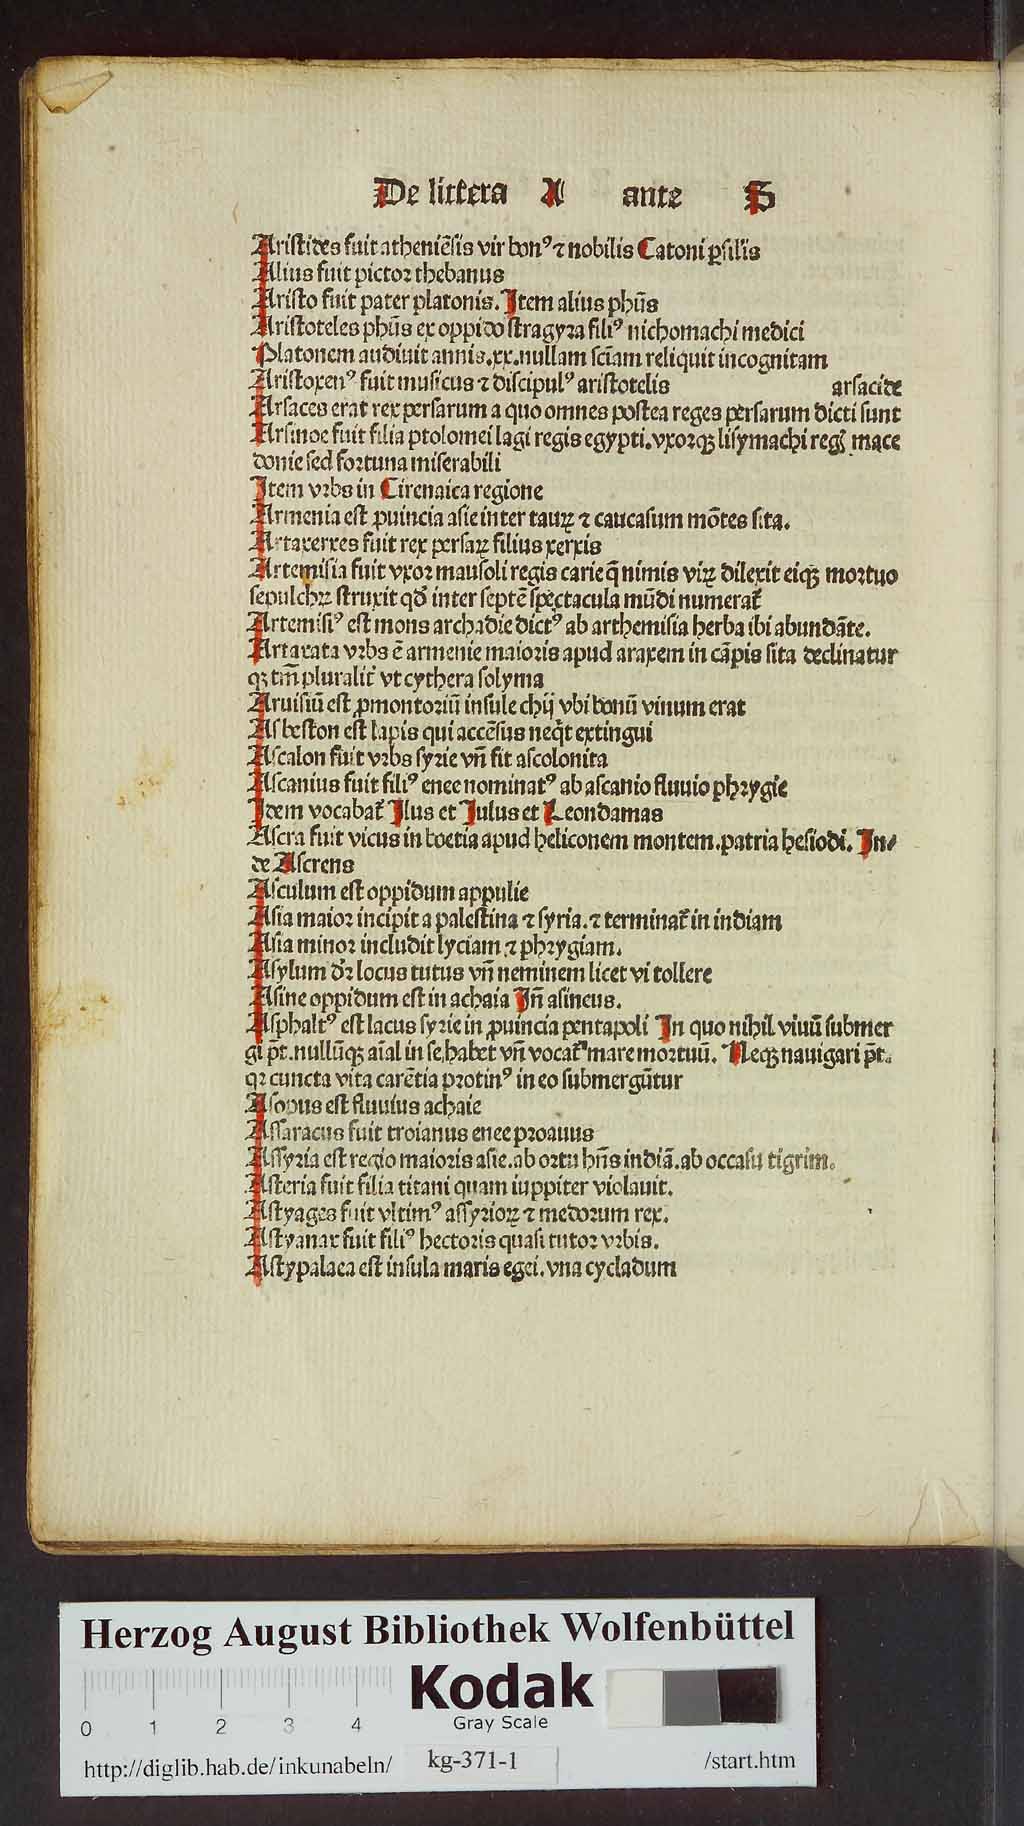 De littera A ante S
Aristides fuit atheniēsis vir bonꝰ ⁊ nobilis Catoni ꝑsilis
Alius fuit pictor thebanus
Aristo fuit pater platonis. Item alius phūs
Aristoteles phūs ex oppido stragyra filiꝰ nichomachi medici
Platonem audiuit annis.xx.nullam sciam reliquit incognitam
Aristoxenꝰ fuit musicus ⁊ discipulꝰ aristotelis arsacide
Arsaces erat rex persarum a quo omnes postea reges persarum dicti sunt
Arsinoe fuit filia ptolomei lagi regis egypti.vxorqꝫ lisymachi reḡ mace
donie sed fortuna miserabili
Item vrbs in Cirenaica regione
Armenia est ꝓuincia asie inter tauꝝ ⁊ caucasum mōtes sita.
Artaxerxes fuit rex persaꝝ filius xerxis
Artemisia fuit vxor mausoli regis carie q̄ nimis viꝝ dilexit eiqꝫ mortuo
sepulchꝝ struxit qd̓ inter septē spectacula mūdi numerat̄
Artemisiꝰ est mons archadie dictꝰ ab arthemisia herba ibi abundāte.
Artaxata vrbs ē armenie maioris apud araxem in cāpis sita declinatur
qꝫ tm̄ pluralit̄ vt cythera solyma
Aruisiū est ꝓmontoriū insule chij vbi bonū vinum erat
Asbeston est lapis qui accēsus neq̄t extingui
Ascalon fuit vrbs syrie vn̄ fit ascolonita
Ascanius fuit filiꝰ enee nominatꝰ ab ascanio fluuio phrygie
Idem vocabat̄ Ilus et Iulus et Leondamas
Ascra fuit vicus in boetia apud heliconem montem.patria hesiodi. In⸗
de Ascrens
Asculum est oppidum appulie
Asia maior incipit a palestina ⁊ syria.⁊ terminat̄ in indiam
Asia minor includit lyciam ⁊ phrygiam.
Asylum dr̄ locus tutus vn̄ neminem licet vi tollere
Asine oppidum est in achaia In̄ asineus.
Asphaltꝰ est lacus syrie in ꝓuincia pentapoli In quo nihil viuū submer
gi pt̄.nullūqꝫ aīal in se habet vn̄ vocat̄ mare mortuū. Neqꝫ nauigari pt̄.
qꝛ cuncta vita carētia protinꝰ in eo submergūtur
Asopus est fluuius achaie
Assaracus fuit troianus enee proauus
Assyria est regio maioris asie.ab ortu hn̄s indiā.ab occasu tigrim.
Asteria fuit filia titani quam iuppiter violauit.
Astyages fuit vltimꝰ assyrioꝝ ⁊ medorum rex.
Astyanax fuit filiꝰ hectoris quasi tutor vrbis.
Astypalaea est insula maris egei.vna cycladum
Herzog August Bibliothek Wolfenbüttel
Kodak
Gray Scale
0 1 2 3 4
http://diglib.hab.de/inkunabeln/ kg-371-1 /start.htm